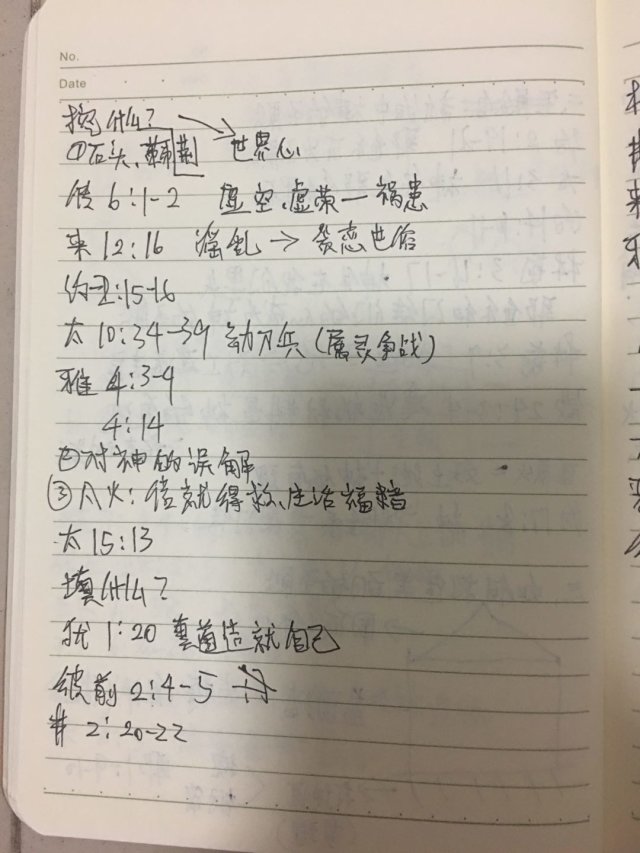 No.
Date
挖什么?
①石头、荆棘 世界心
传 6:1-2 虚空、虚荣—祸患
来 12:16 淫乱→贪恋世俗
约一2:15-16
太 10:34-39 动刀兵(属灵争战)
雅 4:3-4
4:14
②对神的误解
③ 信就得救、生活
太 15:13
填什么?
犹 1:20 造就自己
彼前 2:4-5
2:20-22